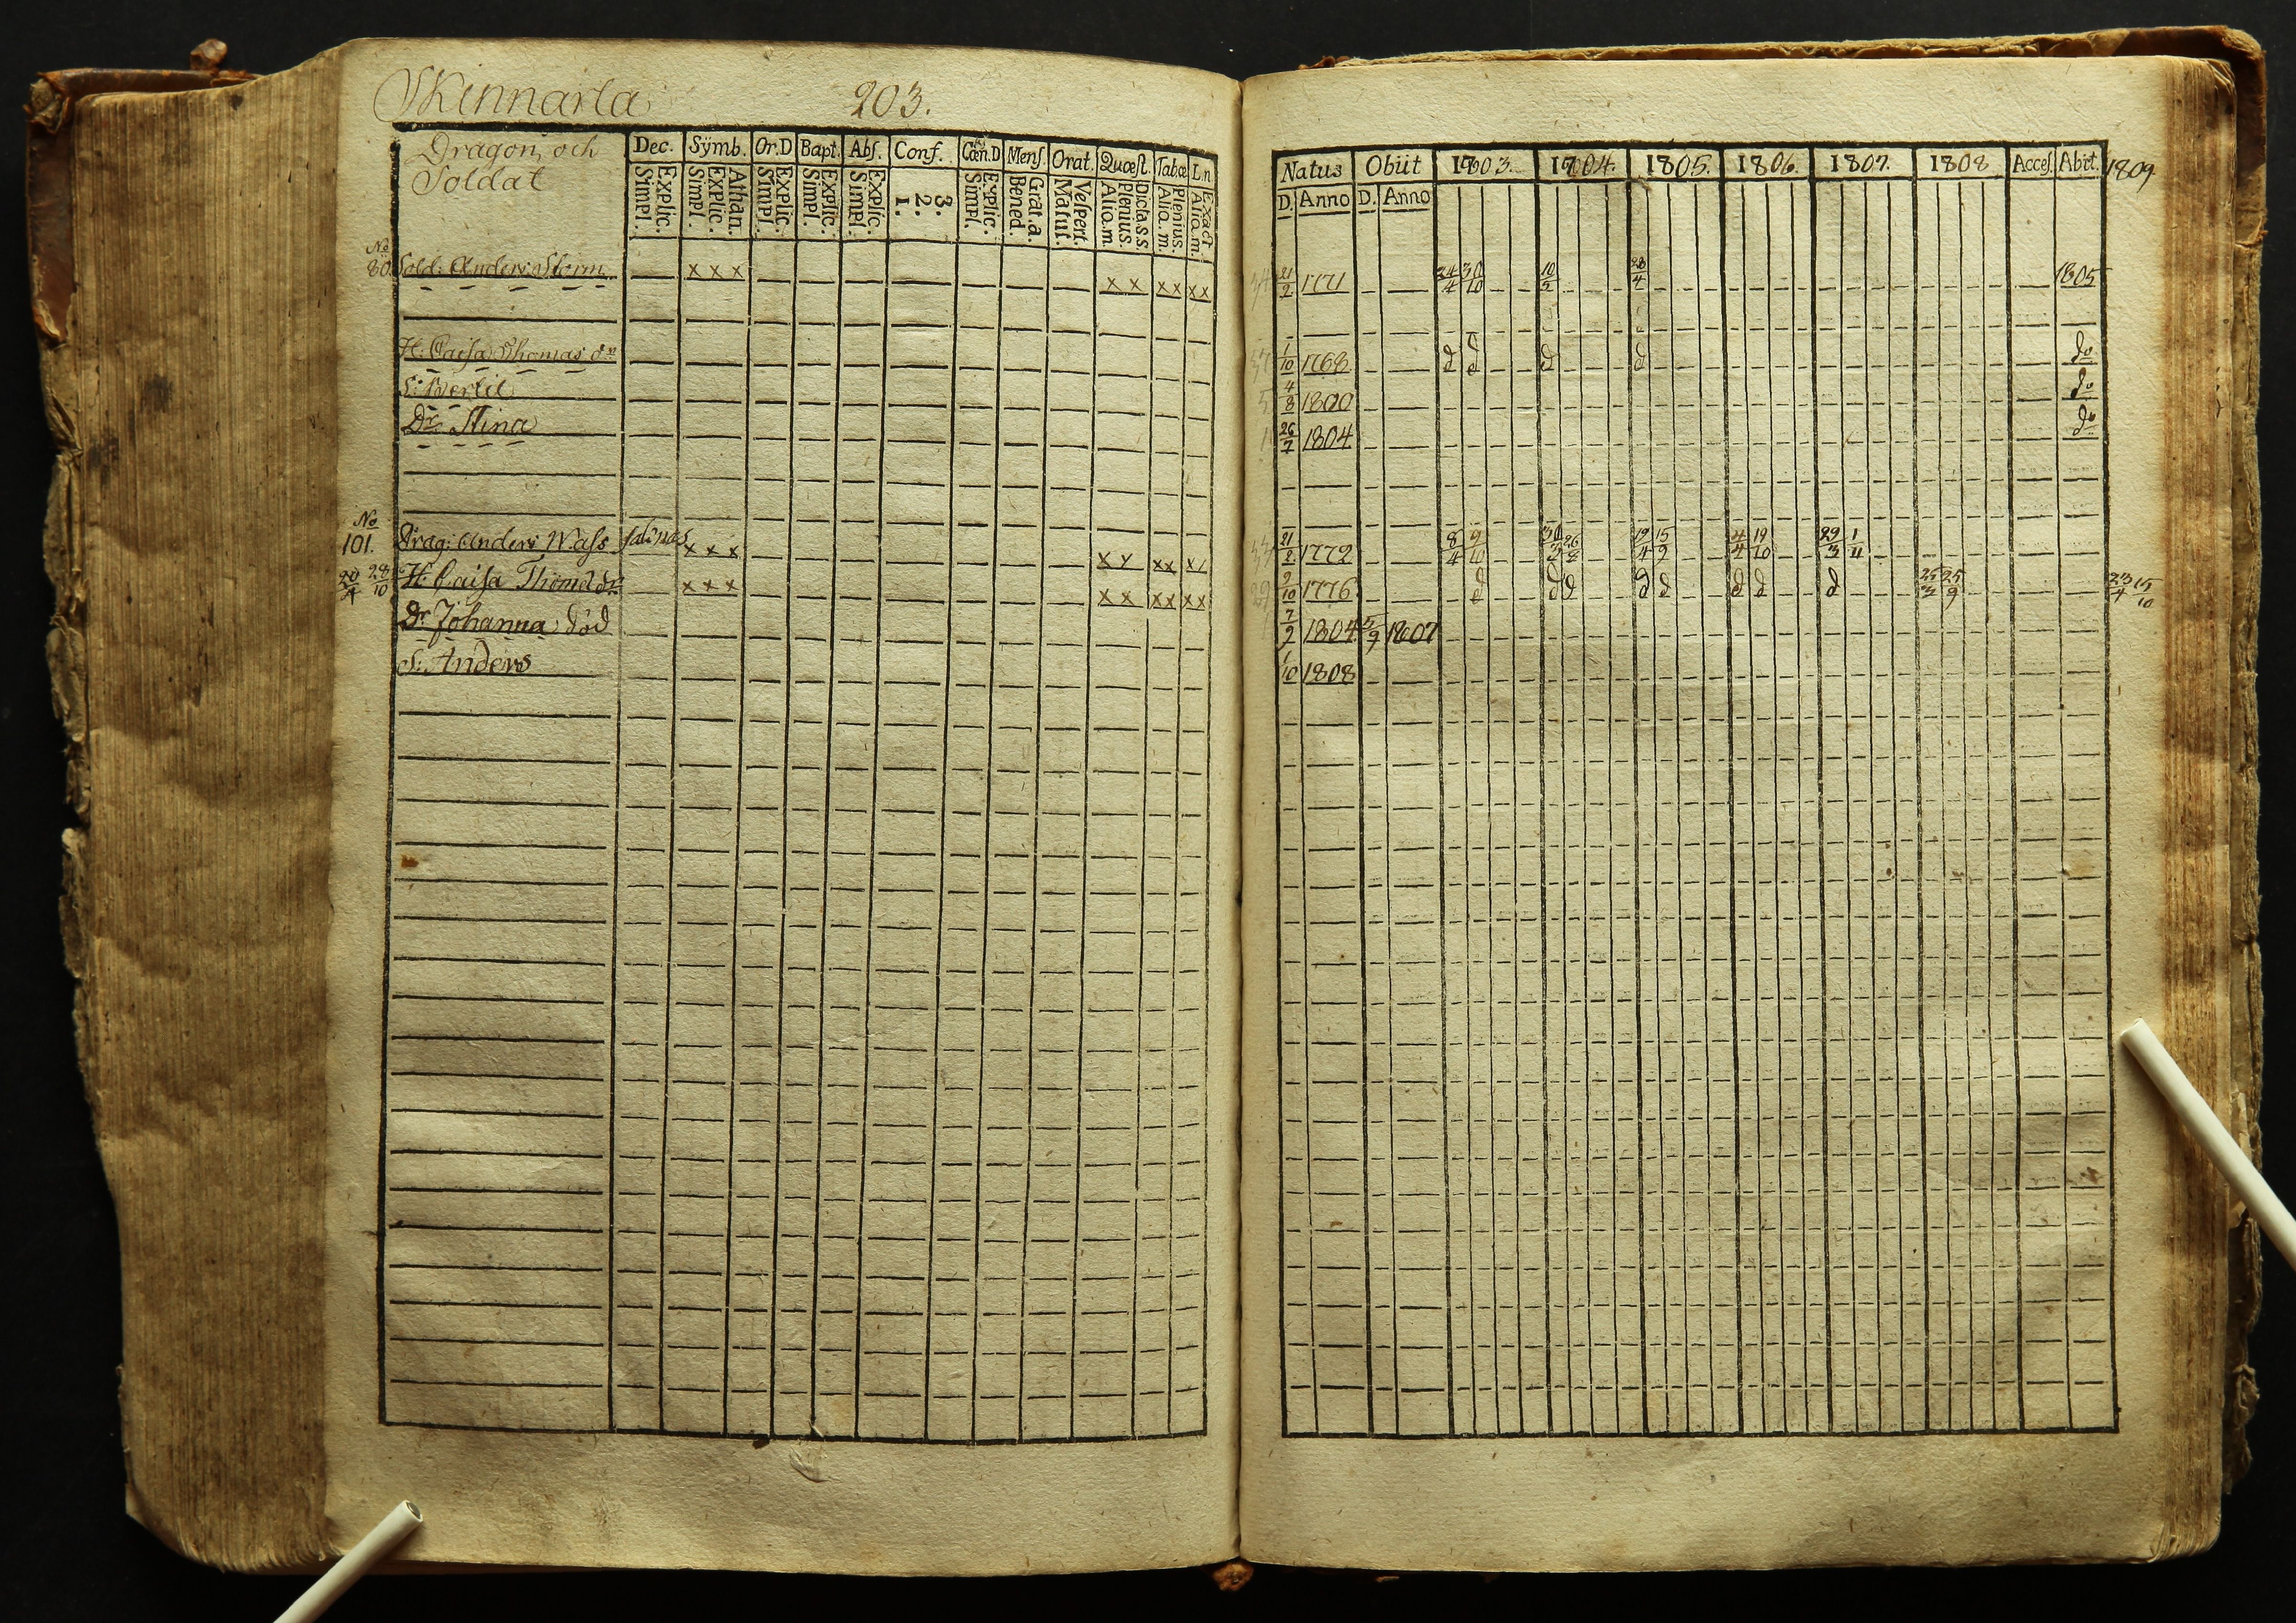 Skinnarla 203.
Dragon och
Soldat
Dec. Sÿmb. Or.D Bapt. Abſ. Conf. Cœn.D Menſ. Orat. Quæſt. Tabæ L.n.
Simpl. Explic. Simpl. Explic. Athan. Simpl. Explic. Simpl. Explic. Simpl. Explic. 1. 2. 3. Simpl. Explic. Bened. Grat.a. Matut. Veſpert. Alio.m. Plenius. Dicta.s.s Alio.m. Plenius. Alio.m. Exact
No
80. Sold: Anders Storm x x x x x x x x x
H: Caisa Thomas dr
S: Bertil
Dr Stina
No
101. Drag: Anders Wass x x x x x x x x x
20/4 28/10 H: Caisa Thomæ dr x x x x x x x x x
Dr Johanna död
S: Anders
Natus Obiit 1803. 1804. 1805. 1806. 1807. 1808 Acceſ. Abiit. 1809
D. Anno D. Anno
21/2 1771 24/4 30/10 10/5 28/4 1805
1/10 1768 d d d d do
4/8 1800 do
26/7 1804 do
21/2 1772 8/4 9/10 30/3 26/8 19/4 15/9 4/4 19/10 29/3 1/11
9/10 1776 d d d d d d d d 25/3 25/9 23/4 15/10
7/2 1804 5/9 1807
1/10 1808